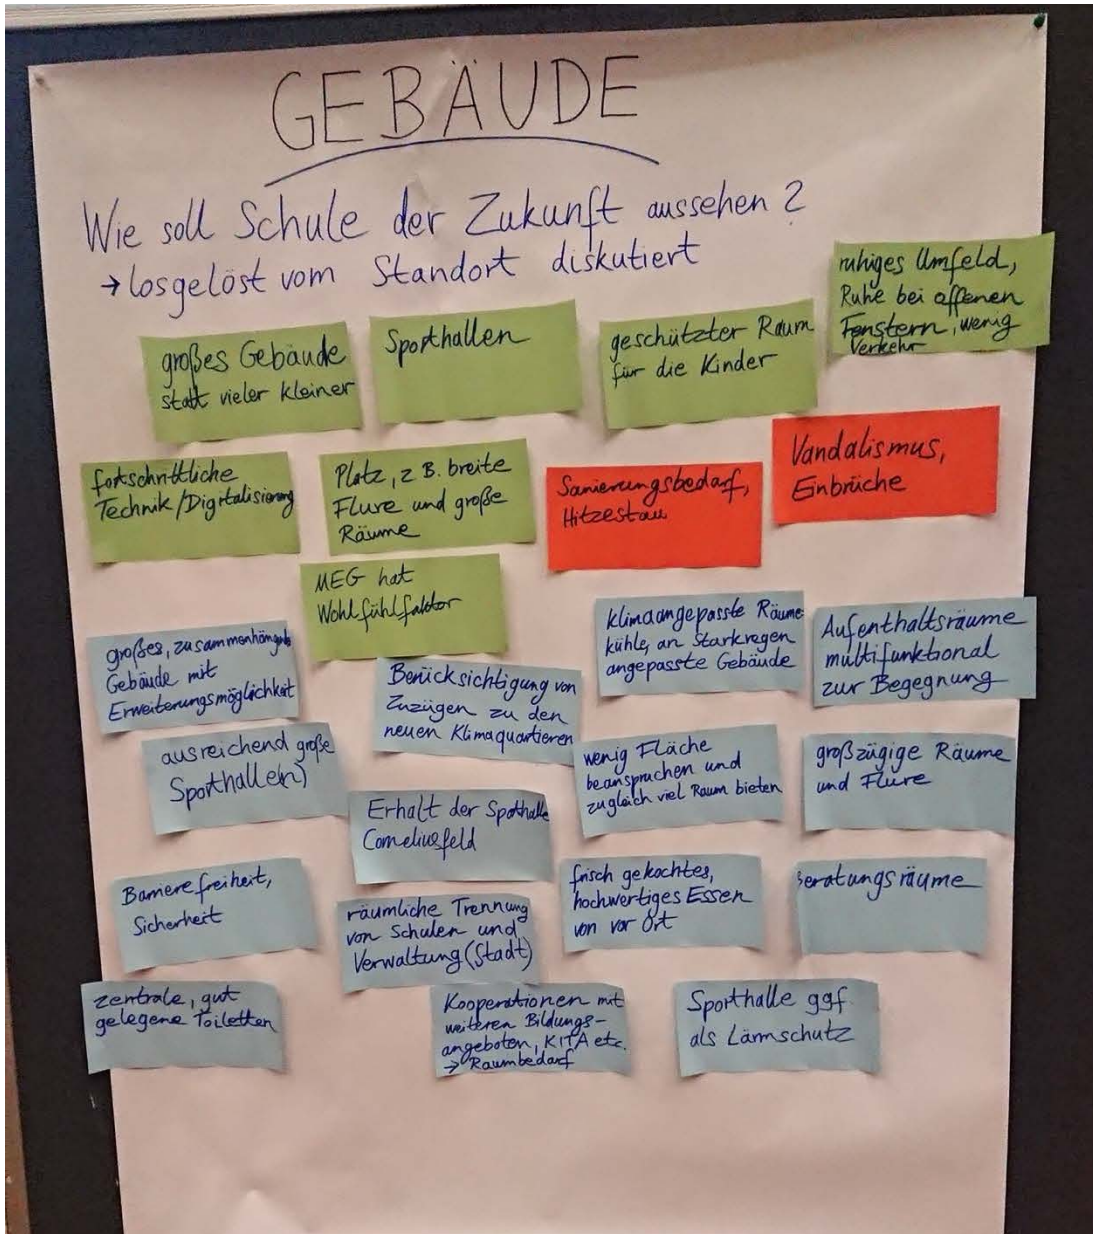 GEBÄUDE
Wie soll Schule der Zukunft aussehen?
→ losgelöst vom Standort diskutiert
ruhiges Umfeld,
Ruhe bei offenen
Fenstern, wenig
Verkehr
großes Gebäude
statt vieler kleiner
Sporthallen
geschützter Raum
für die Kinder
fortschrittliche
Technik/Digitalisierung
Platz, z.B. breite
Flure und große
Räume
Sanierungsbedarf,
Hitzestau
Vandalismus,
Einbrüche
MEG hat
Wohlfühlfaktor
großes, zusammenhängende
Gebäude mit
Erweiterungsmöglichkeit
Berücksichtigung von
Zuzügen zu den
neuen Klimaquartieren
klimaangepasste Räume
kühle, an Starkregen
angepasste Gebäude
Aufenthaltsräume
multifunktional
zur Begegnung
ausreichend große
Sporthalle(n)
Erhalt der Sporthalle
Corneliusfeld
wenig Fläche
beanspruchen und
zugleich viel Raum bieten
großzügige Räume
und Flure
Barrierefreiheit,
Sicherheit
räumliche Trennung
von Schulen und
Verwaltung (Stadt)
frisch gekochtes,
hochwertiges Essen
von vor Ort
Beratungsräume
zentrale, gut
gelegene Toiletten
Kooperationen mit
weiteren Bildungs-
angeboten, KITA etc.
→ Raumbedarf
Sporthalle ggf.
als Lärmschutz